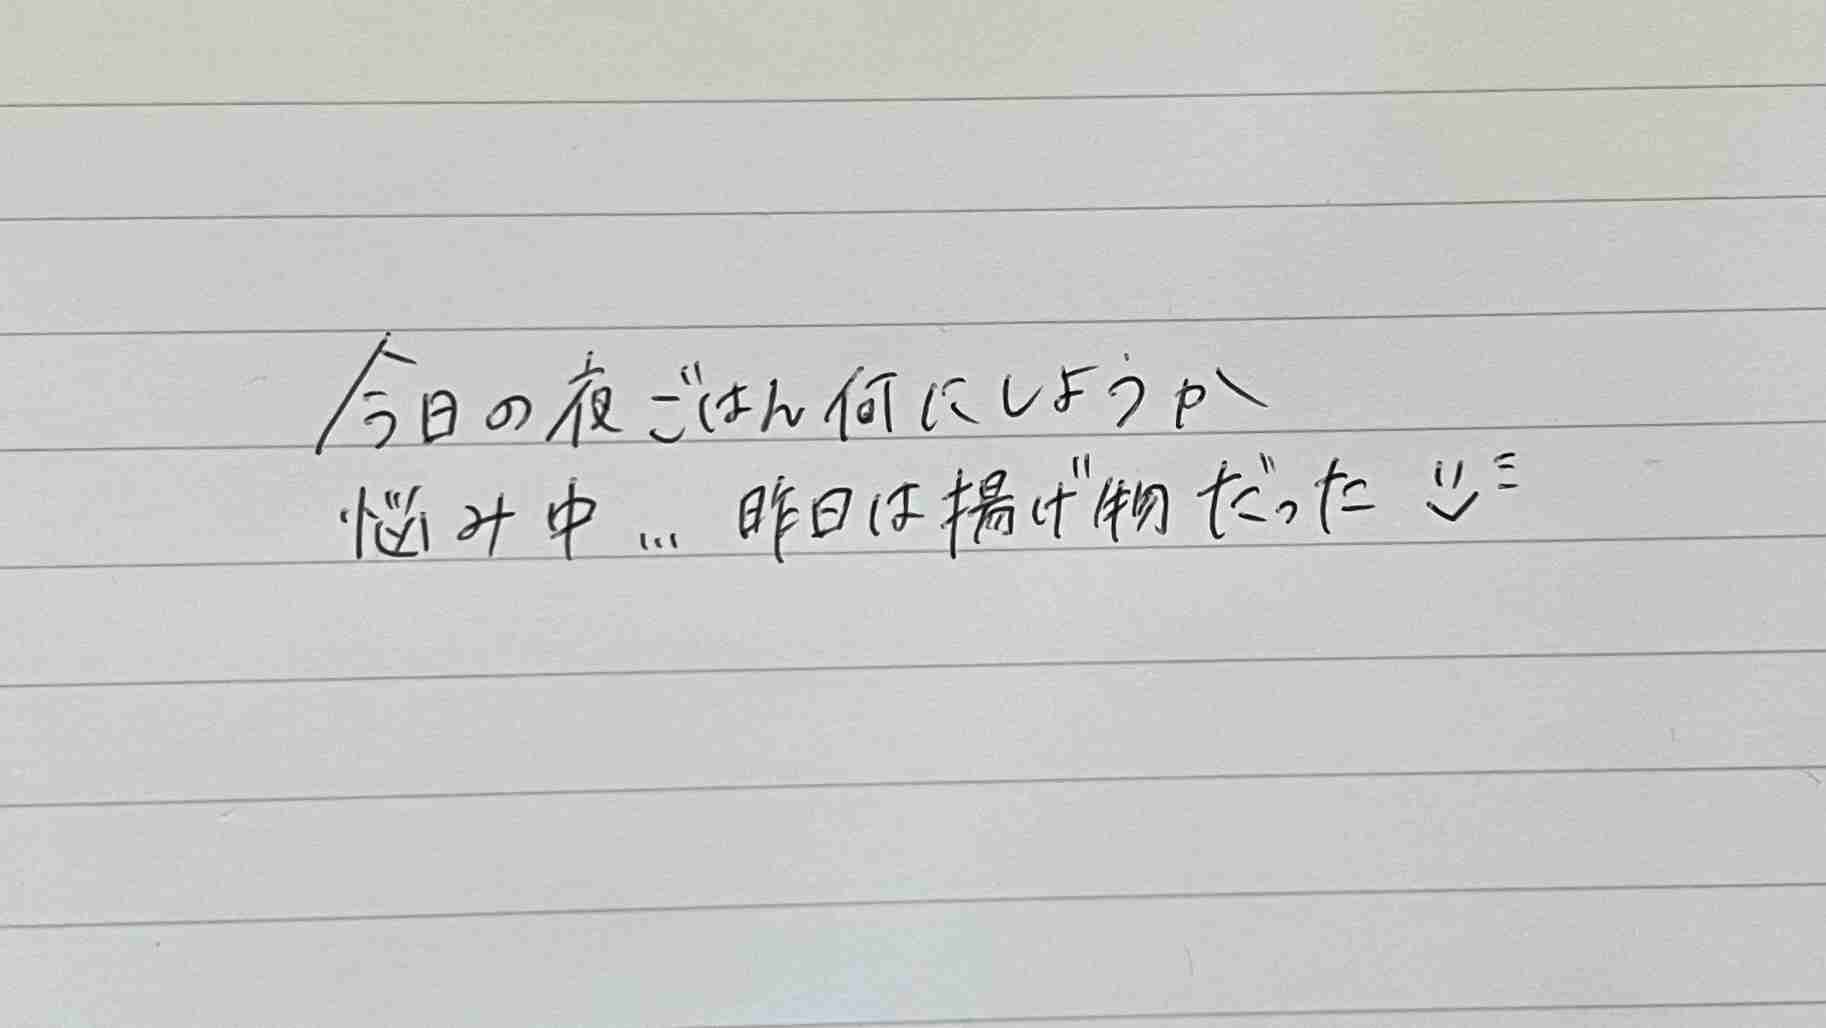 今日の夜ごはん何にしようか
悩み中... 昨日は揚げ物だった